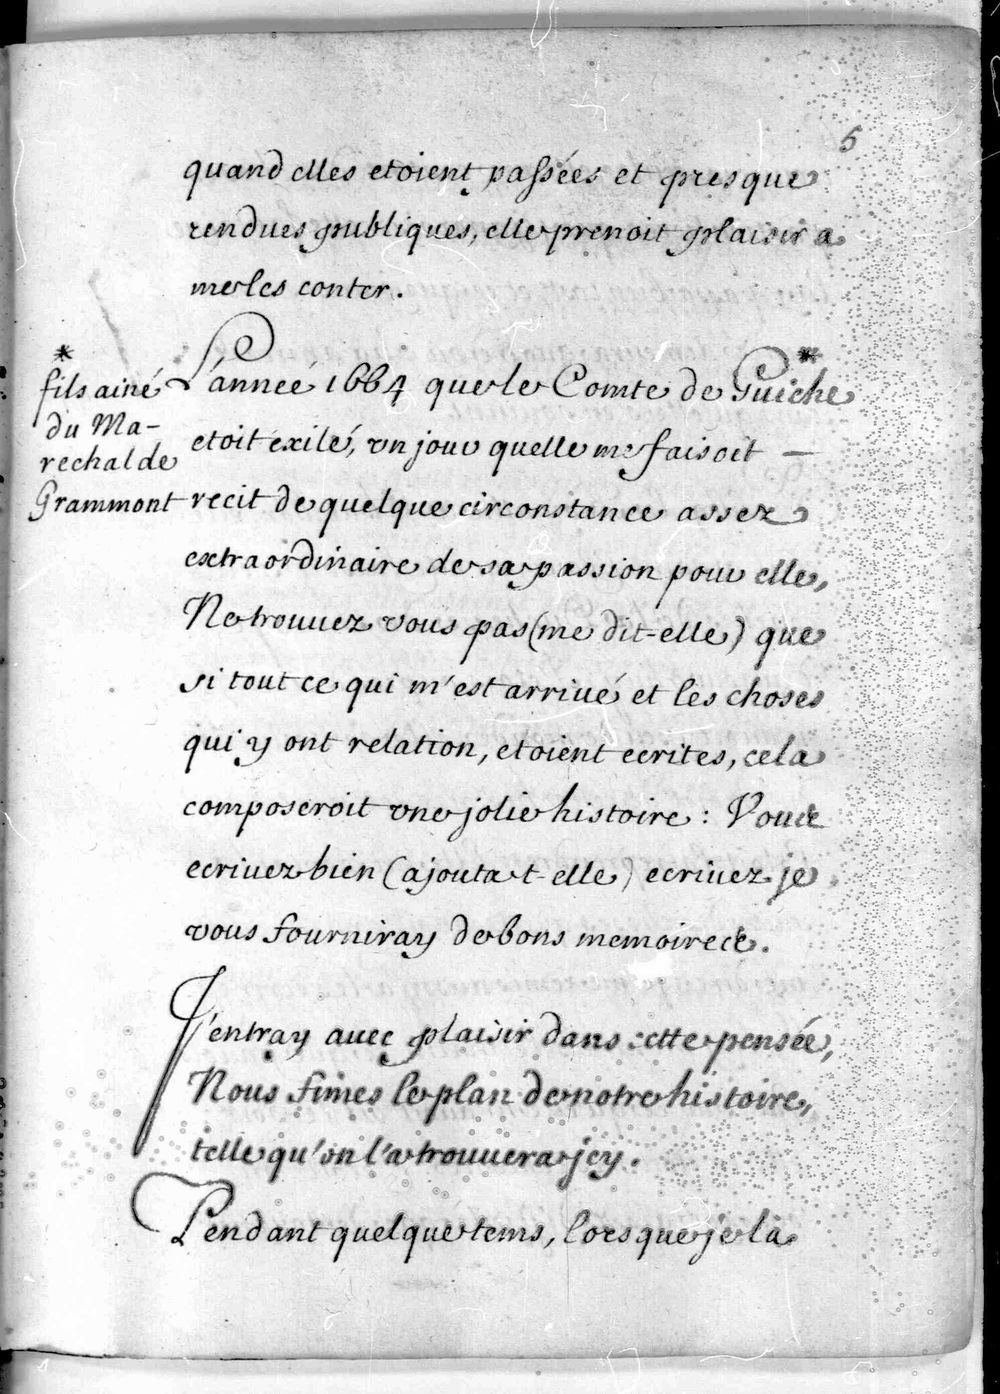 5
quand elles etoient passées et presque
rendues publiques, elle prenoit plaisir a
me les conter.
L'année 1664 que le Comte de Guiche *
etoit exilé, un jour quelle me faisoit —
recit de quelque circonstance assez
extraordinaire de sa passion pour elle,
Ne trouvez vous pas (me dit-elle) que
si tout ce qui m'est arrivé et les choses
qui y ont relation, etoient ecrites, cela
composeroit une jolie histoire : Vous
ecrivez bien (ajouta t-elle) ecrivez je
vous fourniray de bons memoires.
J'entray avec plaisir dans cette pensée,
Nous fimes le plan de notre histoire,
telle qu'on l'a trouvera jcy.
Pendant quelque tems, lorsque je la
*
fils ainé
du Ma-
rechal de
Grammont